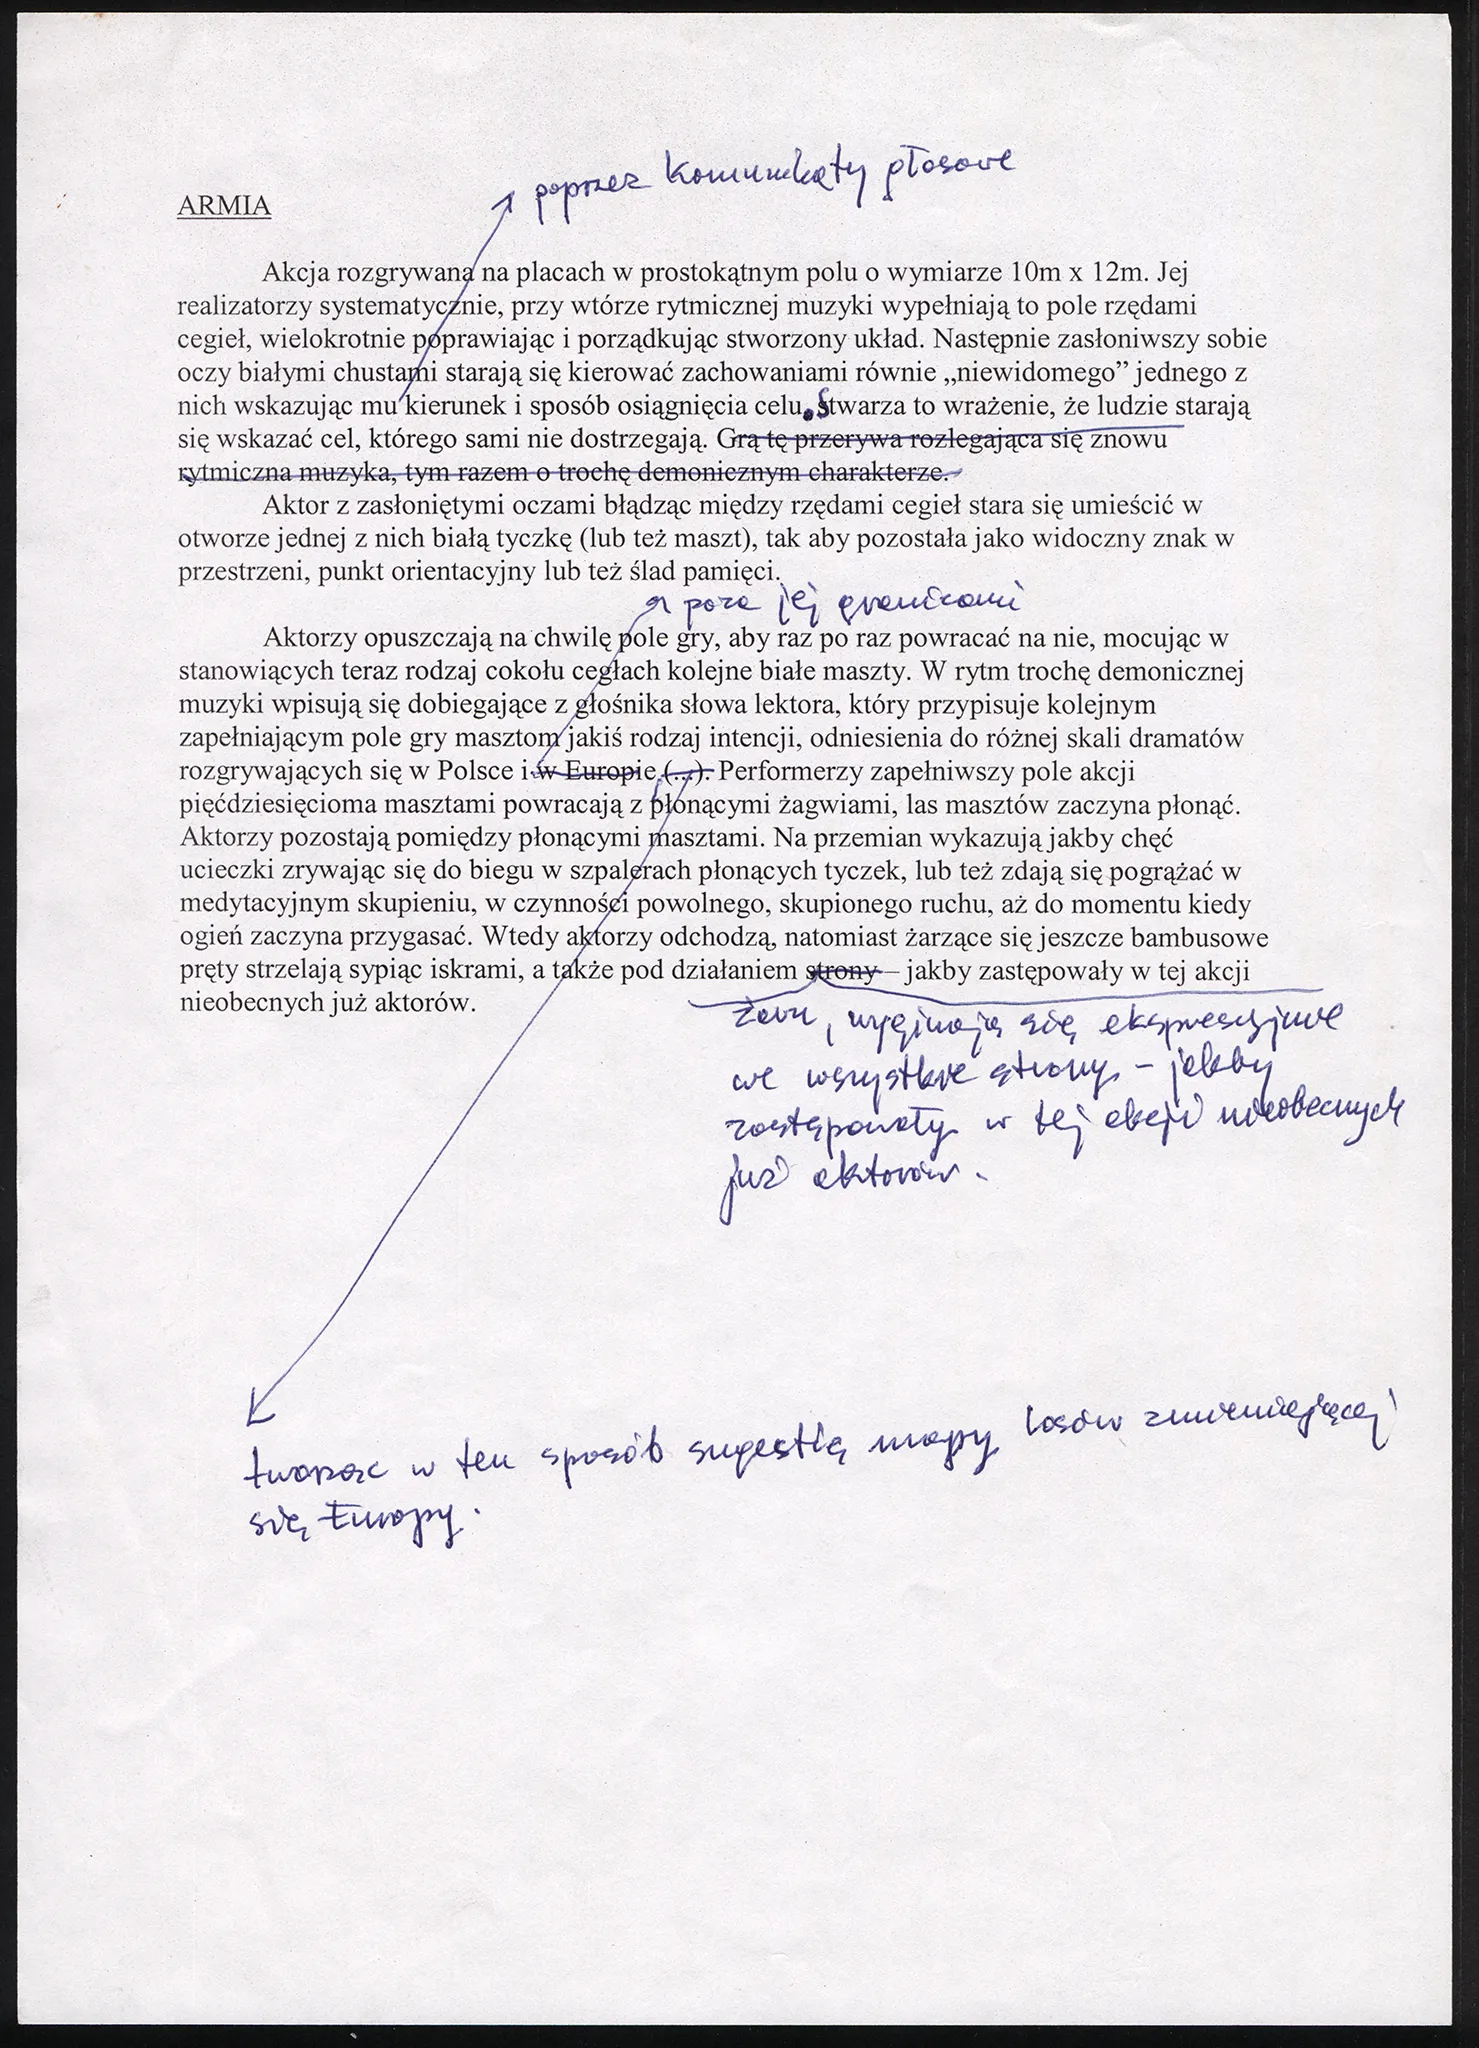 poprzez komunikaty głosowe
ARMIA
Akcja rozgrywana na placach w prostokątnym polu o wymiarze 10m x 12m. Jej
realizatorzy systematycznie, przy wtórze rytmicznej muzyki wypełniają to pole rzędami
cegieł, wielokrotnie poprawiając i porządkując stworzony układ. Następnie zasłoniwszy sobie
oczy białymi chustami starają się kierować zachowaniami równie „niewidomego” jednego z
nich wskazując mu kierunek i sposób osiągnięcia celu. Stwarza to wrażenie, że ludzie starają
się wskazać cel, którego sami nie dostrzegają. Grą tę przerywa rozlegająca się znowu
rytmiczna muzyka, tym razem o trochę demonicznym charakterze.
Aktor z zasłoniętymi oczami błądząc między rzędami cegieł stara się umieścić w
otworze jednej z nich białą tyczkę (lub też maszt), tak aby pozostała jako widoczny znak w
przestrzeni, punkt orientacyjny lub też ślad pamięci.
poza jej granicami
Aktorzy opuszczają na chwilę pole gry, aby raz po raz powracać na nie, mocując w
stanowiących teraz rodzaj cokołu cegłach kolejne białe maszty. W rytm trochę demonicznej
muzyki wpisują się dobiegające z głośnika słowa lektora, który przypisuje kolejnym
zapełniającym pole gry masztom jakiś rodzaj intencji, odniesienia do różnej skali dramatów
rozgrywających się w Polsce i w Europie (...). Performerzy zapełniwszy pole akcji
pięćdziesięcioma masztami powracają z płonącymi żagwiami, las masztów zaczyna płonąć.
Aktorzy pozostają pomiędzy płonącymi masztami. Na przemian wykazują jakby chęć
ucieczki zrywając się do biegu w szpalerach płonących tyczek, lub też zdają się pogrążać w
medytacyjnym skupieniu, w czynności powolnego, skupionego ruchu, aż do momentu kiedy
ogień zaczyna przygasać. Wtedy aktorzy odchodzą, natomiast żarzące się jeszcze bambusowe
pręty strzelają sypiąc iskrami, a także pod działaniem strony – jakby zastępowały w tej akcji
nieobecnych już aktorów.
żaru, wyginają się ekspresyjnie
we wszystkie strony – jakby
zastępowały w tej akcji nieobecnych
już aktorów.
tworząc w ten sposób sugestię mapy losów zmieniającej
się Europy.